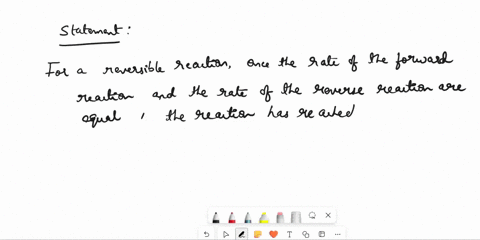 Statement:
For a reversible reaction, once the rate of the forward
reaction and the rate of the reverse reaction are
equal, the reaction has reacted